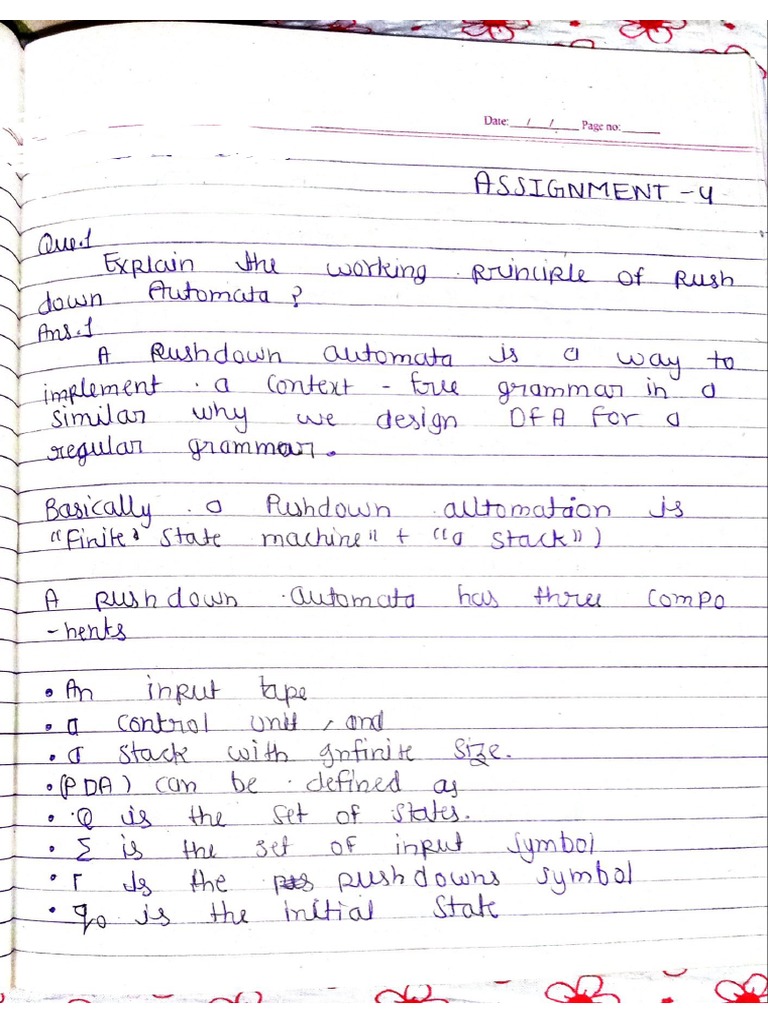 Date: __/__/__ Page no: ____
ASSIGNMENT - 4
Que.1
Explain the working principle of Push
down Automata?
Ans.1
A Pushdown automata is a way to
implement a context - free grammar in a
similar why we design DFA for a
regular grammar.
Basically a Pushdown automataion is
"Finite State machine" + "a stack")
A pushdown automata has three compo
-nents
• An input tape
• a control unit, and
• a stack with infinite size.
• (PDA) can be defined as
• Q is the set of states.
• Σ is the set of input symbol
• Γ is the pushdowns symbol
• q0 is the initial state